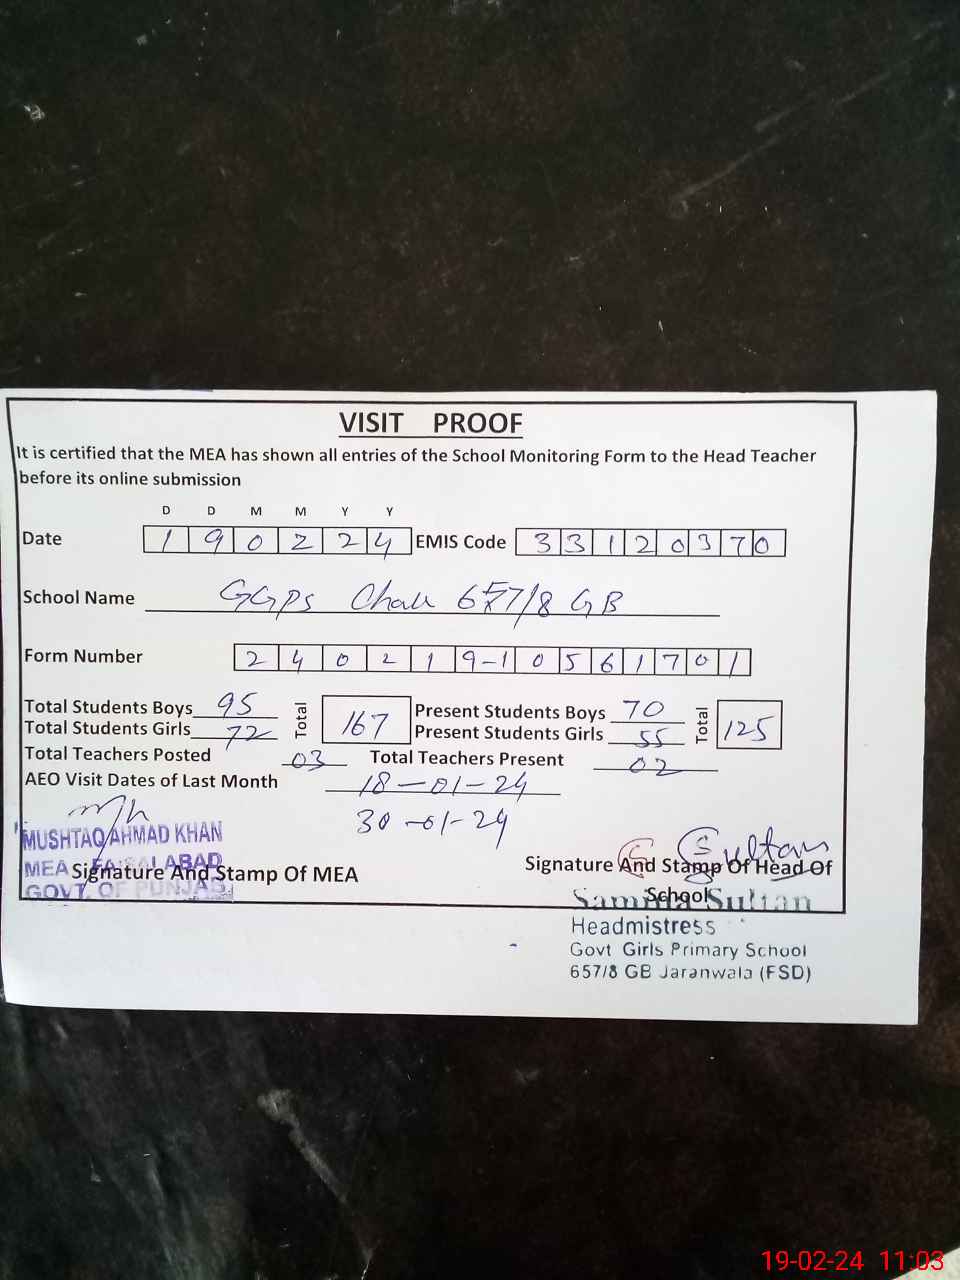 VISIT PROOF
It is certified that the MEA has shown all entries of the School Monitoring Form to the Head Teacher
before its online submission
D D M M Y Y
Date 1 9 0 2 2 4 EMIS Code 3 3 1 2 0 3 7 0
School Name GGPS Chak 657/8 GB
Form Number 2 4 0 2 1 9-1 0 5 6 1 7 0 1
Total Students Boys 95 Total 167 Present Students Boys 70 Total 125
Total Students Girls 72 Present Students Girls 55
Total Teachers Posted 03 Total Teachers Present 02
AEO Visit Dates of Last Month 18-01-24
30-01-24
MUSHTAQ AHMAD KHAN
MEA FAISALABAD
GOVT. OF PUNJAB
Signature And Stamp Of MEA
Sultan
Signature And Stamp Of Head Of
School
Sultan
Headmistress
Govt Girls Primary School
657/8 GB Jaranwala (FSD)
19-02-24 11:03